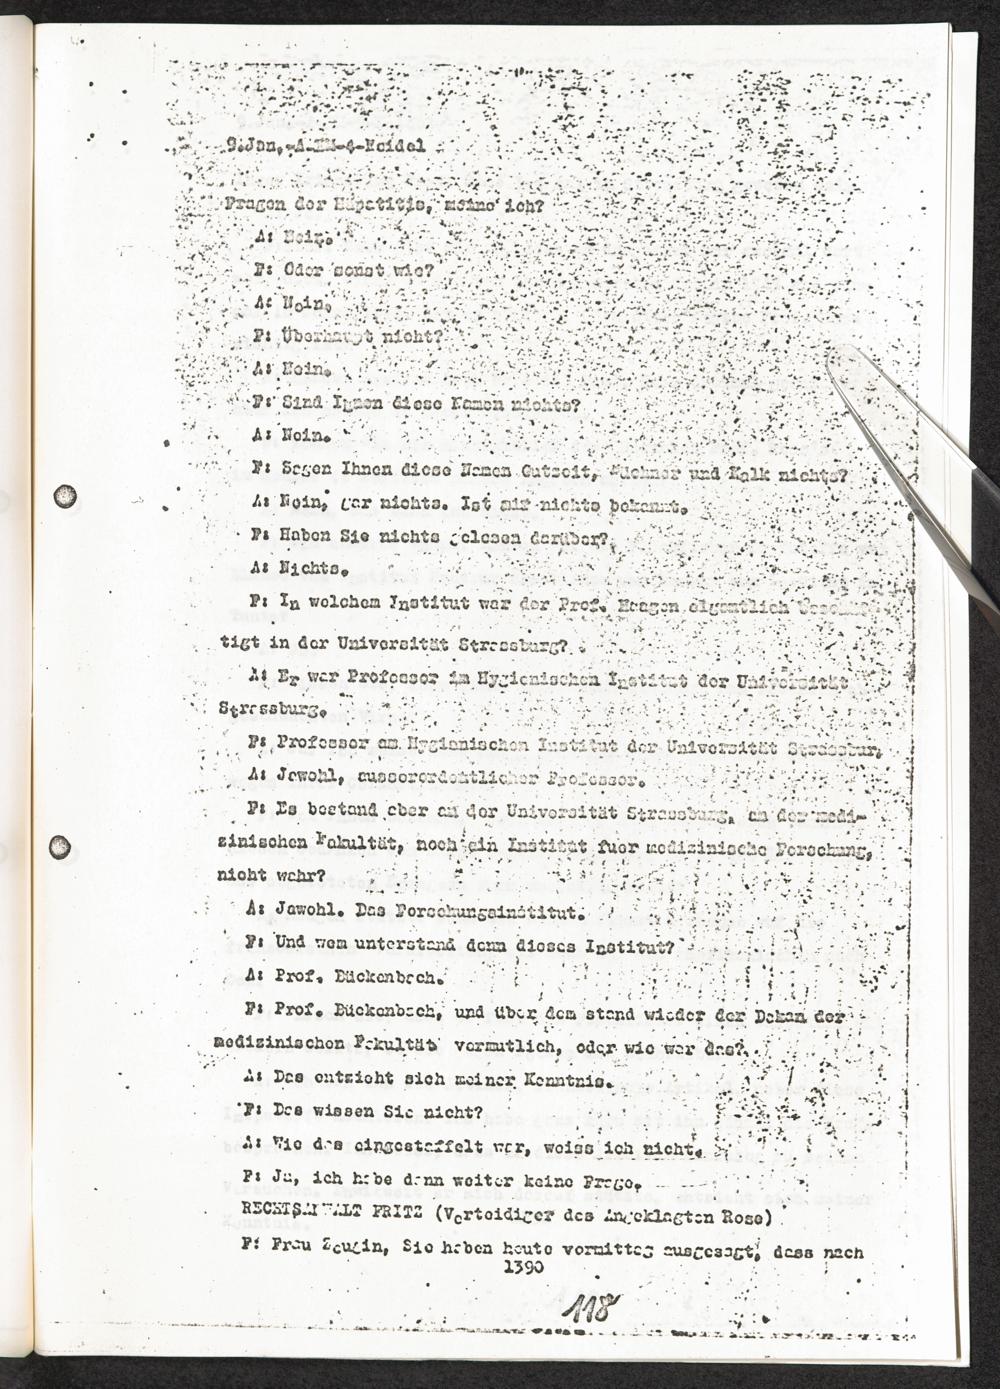 9.Jan.-A-MM-4-Meidel
Fragen der Hepatitis, meine ich?
A: Nein.
F: Oder sonst wie?
A: Nein.
F: Überhaupt nicht?
A: Nein.
F: Sind Ihnen diese Namen nichts?
A: Nein.
F: Sagen Ihnen diese Namen Gutzeit, Büchner und Kalk nichts?
A: Nein, gar nichts. Ist mir nichts bekannt.
F: Haben Sie nichts gelesen darüber?
A: Nichts.
F: In welchem Institut war der Prof. Haagen eigentlich beschäf-
tigt in der Universität Strassburg?
A: Er war Professor im Hygienischen Institut der Universität
Strassburg.
F: Professor am Hygianischen Institut der Universität Strassbur,
A: Jawohl, ausserordentlicher Professor.
F: Es bestand aber an der Universität Strassburg, an der medi-
zinischen Fakultät, noch ein Institut fuer medizinische Forschung,
nicht wahr?
A: Jawohl. Das Forschungsinstitut.
F: Und wem unterstand denn dieses Institut?
A: Prof. Bückenbach.
F: Prof. Bückenbach, und über dem stand wieder der Dekan der
medizinischen Fakultät vermutlich, oder wie war das?
A: Das entzieht sich meiner Kenntnis.
F: Das wissen Sie nicht?
A: Wie das eingestaffelt war, weiss ich nicht.
F: Ja, ich habe dann weiter keine Frage.
RECHTSANWALT FRITZ (Verteidiger des Angeklagten Rose)
F: Frau Zeugin, Sie haben heute vormittag ausgesagt, dass nach
1390
118